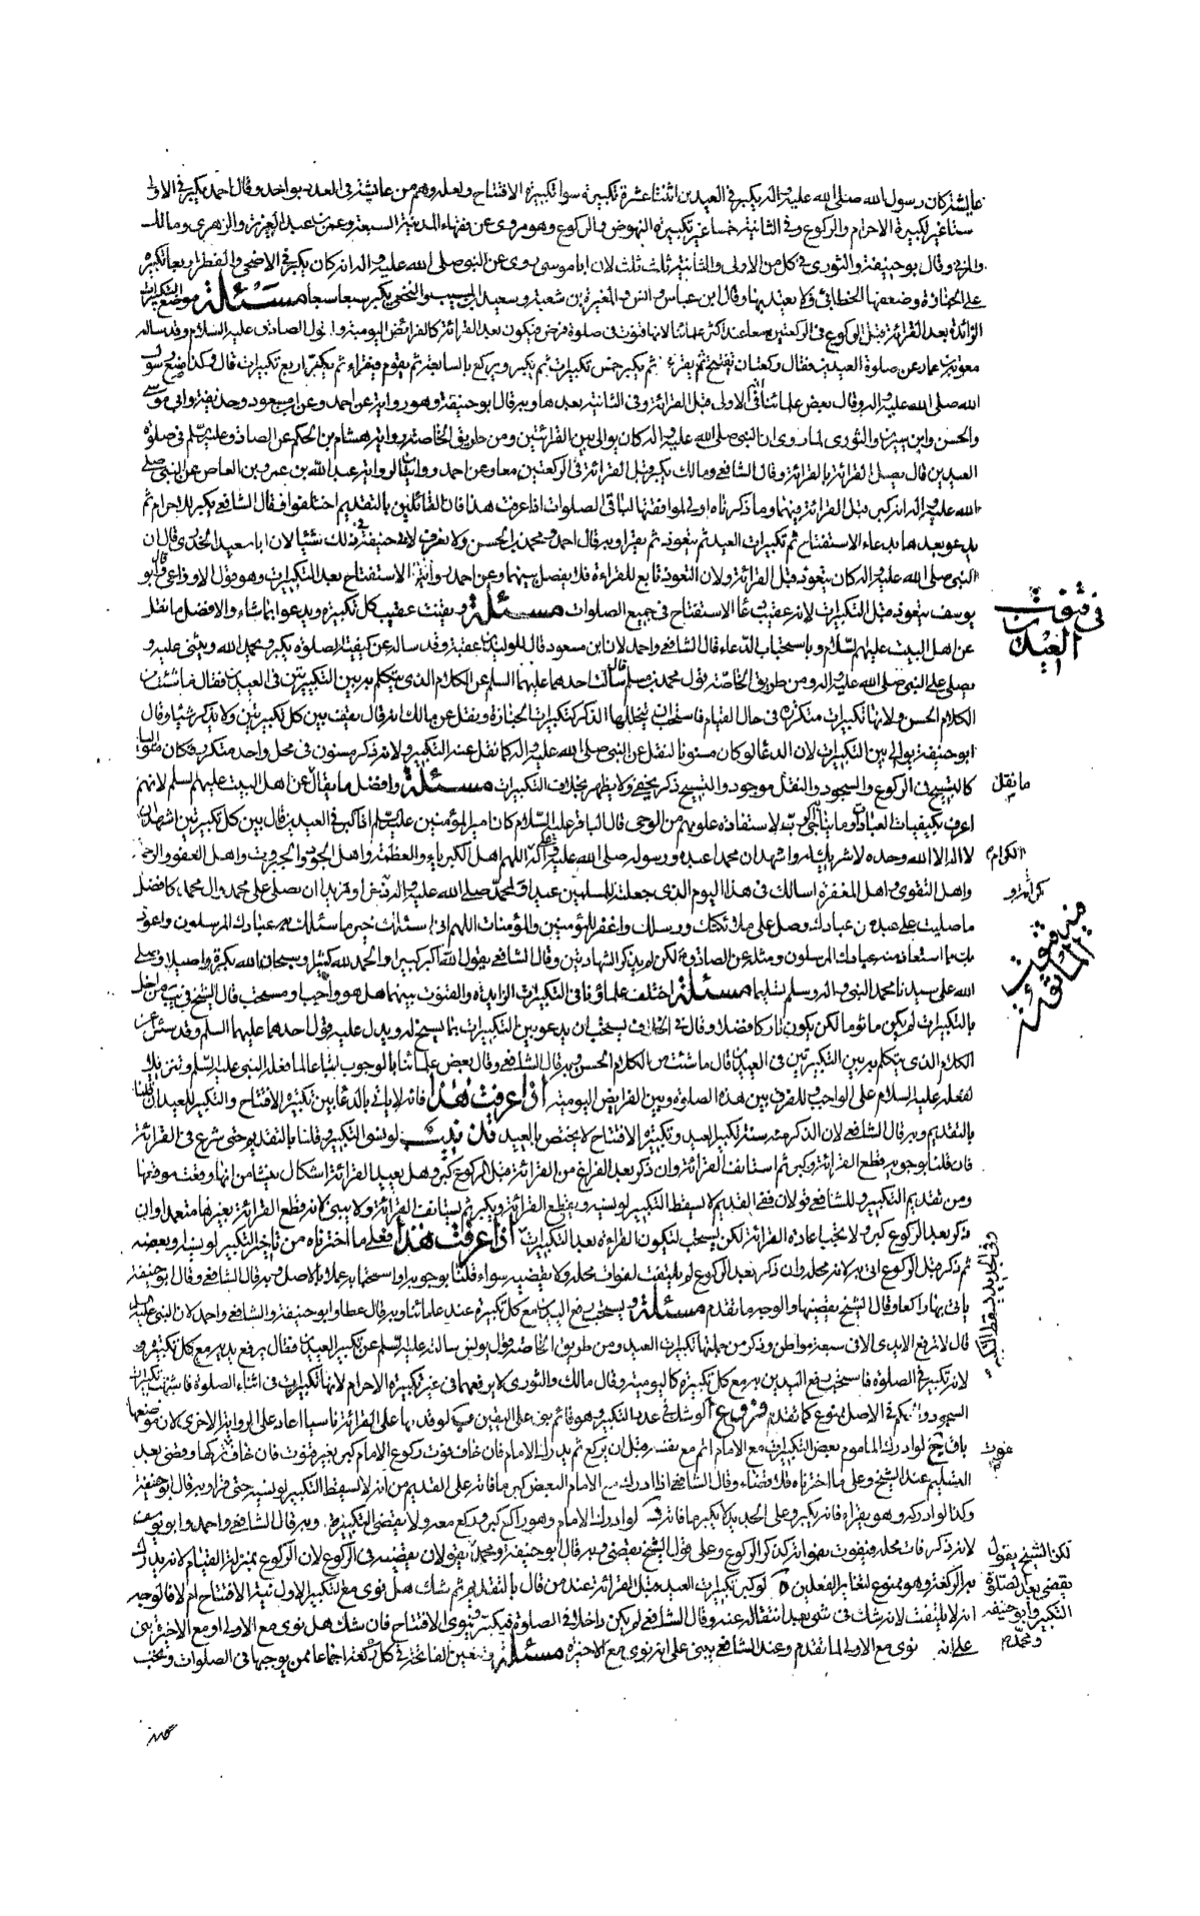 عايشة كان رسول الله صلى الله عليه واله يكبر في العيدين اثنتا عشرة تكبيرة سوا تكبيرة الافتتاح ولعله وهم من عايشة في العدد بواحد وقال احمد يكبر في الاولى
ستا غير تكبيرة الاحرام والركوع وفي الثانية خمسا غير تكبيرة النهوض والركوع وهو مروى عن فقهاء المدينة السبعة وعمر بن عبد العزيز والزهري ومالك
والمزني وقال ابو حنيفة والثوري في كل من الاولى والثانية ثلث ثلث لان ابا موسى روى عن النبي صلى الله عليه واله انه كان يكبر في الاضحى والفطر اربعا تكبيره
على الجنازة وضعفها الخطابي ولا يعتد بها وقال ابن عباس وانس والمغيرة بن شعبة وسعيد بن المسيب والنخعي يكبر سبعا سبعا مسئلة موضع التكبيرات
الزائدة بعد القرائة قبل الركوع في الركعتين معا عند اكثر علمائنا لانها قنوت في صلوة فرض فيكون بعد القرائة كالفرائض اليومية ولقول الصادق عليه السلام وقد ساله
معوية بن عمار عن صلوة العيدين فقال ركعتان تفتتح ثم يقرء ثم يكبر خمس تكبيرات ثم يكبر ويركع بالسابعة ثم يقوم فيقراء ثم يكبر اربع تكبيرات قال وكذا صنع رسول
الله صلى الله عليه واله وقال بعض علمائنا انه في الاولى قبل القرائة وفي الثانية بعدها وبه قال ابو حنيفة وهو رواية عن احمد وعن ابن مسعود وحذيفة وابي موسى
والحسن وابن سيرين والثوري لما روى ان النبي صلى الله عليه واله كان يوالى بين القرائتين ومن طريق الخاصة رواية هشام بن الحكم عن الصادق عليه السلم في صلوة
العيدين قال يصل القرائة بالقرائة وقال الشافعي ومالك يكبر قبل القرائة في الركعتين معا وعن احمد روايتان لرواية عبد الله بن عمرو بن العاص عن النبي صلى
الله عليه واله انه كبر قبل القرائة فيهما وما ذكرناه اولى لموافقتها لباقى الصلوات اذا عرفت هذا فان القائلين بالتقديم اختلفوا فقال الشافعي يكبر للاحرام ثم
يدعو بعدها بدعاء الاستفتاح ثم تكبيرات العيد ثم يتعوذ ثم يقرا وبه قال احمد ومحمد بن الحسن ولا نعرف لابي حنيفة في ذلك شيئا لان ابا سعيد الخدري قال ان
النبي صلى الله عليه واله كان يتعوذ قبل القرائة ولان التعوذ تابع للقراءة فلا يفصل بينهما وعن احمد رواية الاستفتاح بعد التكبيرات وهو قول الاوزاعي وقال ابو
يوسف يتعوذ قبل التكبيرات لانه عقيب دعاء الاستفتاح في جميع الصلوات مسئلة ويقنت عقيب كل تكبيرة ويدعو بما شاء والافضل ما نقل
عن اهل البيت عليهم السلام وباستحباب الدعاء قال الشافعي واحمد لان ابن مسعود قال للوليد بن عقبة وقد ساله عن كيفية الصلوة يكبر ويحمد الله ويثنى عليه و
يصلى على النبي صلى الله عليه واله ومن طريق الخاصة قول محمد بن مسلم قال سالت احدهما عليهما السلم عن الكلام الذى يتكلم به بين التكبيرتين في العيدين فقال ما شئت من
الكلام الحسن ولانها تكبيرات متكررة في حال القيام فاستحب ان يتخللها الذكر كتكبيرات الجنازة ونقل عن مالك انه قال يقف بين كل تكبيرتين ولا يذكر شيئا وقال
ابو حنيفة يوالى بين التكبيرات لان الدعا لو كان مسنونا لنقل عن النبي صلى الله عليه واله كما نقل عنه التكبير ولانه ذكر مسنون في محل واحد متكرر فكان متواليا
كالتسبيح في الركوع والسجود والنقل موجود والتسبيح ذكر يخفى ولا يظهر بخلاف التكبيرات مسئلة وافضل ما يقال عن اهل البيت عليهم السلم لانهم
اعرف بكيفيات العبادات وما يناجى الرب به لاستفادة علومهم من الوحى قال الباقر عليه السلام كان امير المؤمنين عليه السلم اذا كبر في العيدين قال بين كل تكبيرتين اشهد ان
لا اله الا الله وحده لا شريك له واشهد ان محمدا عبده ورسوله صلى الله عليه واله اللهم اهل الكبرياء والعظمة واهل الجود والجبروت واهل العفو والرحمة
واهل التقوى واهل المغفرة اسالك في هذا اليوم الذى جعلته للمسلمين عيدا ولمحمد صلى الله عليه واله ذخرا ومزيدا ان تصلى على محمد وال محمد كافضل
ما صليت على عبد من عبادك وصل على ملائكتك ورسلك واغفر للمؤمنين والمؤمنات اللهم اني اسئلك خير ما سئلك به عبادك المرسلون واعوذ
بك مما استعاذ منه عبادك المرسلون ومثله عن الصادق لكن لم يذكر الشهادتين وقال الشافعي يقول الله اكبر كبيرا والحمد لله كثيرا وسبحان الله بكرة واصيلا وصلى
الله على سيدنا محمد النبي واله وسلم تسليما مسئلة اختلف علماؤنا في التكبيرات الزايدة والقنوت بينهما هل هو واجب او مستحب قال الشيخ في يب من اخل
بالتكبيرات لم يكن ماثوما لكن يكون تاركا فضلا وقال في الخلاف يستحب ان يدعو بين التكبيرات بما يسنح له ويدل عليه قول احدهما عليهما السلم وقد سئل عن
الكلام الذى يتكلم به بين التكبيرتين في العيدين قال ما شئت من الكلام الحسن وبه قال الشافعي وقال بعض علمائنا بالوجوب اتباعا لما فعله النبي عليه السلم
لفعله عليه السلام على الواجب وللفرق بين هذه الصلوة وبين الفرايض اليومية اذا عرفت هذا فانه لا ياتي بالدعا بين تكبيرة الافتتاح والتكبير للعيد ان قلنا
بالتقديم وبه قال الشافعي لان الذكر هنا سنة تكبير العيد وتكبيرة الافتتاح لا يختص بالعيد تذنيب لو نسى التكبير وقلنا بالتقديم حتى شرع في القرائة
فان قلنا بوجوبه قطع القرائة وكبر ثم استانف القرائة وان ذكر بعد الفراغ من القرائة قبل الركوع كبر وهل يعيد القرائة اشكال ينشا من انها وقعت موقعها
ومن تقديم التكبير وللشافعي قولان ففي القديم لا يسقط التكبير لو نسيه ويقطع القرائة ويكبر ثم يستانف القرائة ولا يبنى لانه قطع القرائة بغيرها متعمدا وان
ذكر بعد الركوع كبر ولا يجب اعادة القرائة لكن يستحب لتكون القراءة بعد التكبيرات اذا عرفت هذا فعلى ما اخترناه من تاخير التكبير لو نسيه او بعضه
ثم ذكر قبل الركوع اتى به لانه محله وان ذكر بعد الركوع لم يلتفت لفوات محله ولا يقضيه سواء قلنا بوجوبه او استحبابه عملا بالاصل وبه قال الشافعي وقال ابو حنيفة
ياتي بها راكعا وقال الشيخ يقضيها والوجه ما تقدم مسئلة ويستحب رفع اليدين مع كل تكبيرة عند علمائنا وبه قال عطا وابو حنيفة والشافعي واحمد لان النبي عليه السلم
قال لا ترفع الايدى الا في سبعة مواطن وذكر من جملتها تكبيرات العيد ومن طريق الخاصة قول يونس سالته عليه السلم عن تكبير العيدين فقال يرفع يديه مع كل تكبيرة و
لانه تكبير في الصلوة فاستحب رفع اليدين به مع كل تكبيرة كاليومية وقال مالك والثوري لا يرفعهما في غير تكبيرة الاحرام لانها تكبيرات في اثناء الصلوة فاشبهت تكبيرات
السجود والحكم في الاصل ممنوع كما تقدم فروع آ لو شك في عدد التكبير وهو قائم بنى على اليقين ب لو قدمها على القرائة ناسيا اعاد على الرواية الاخرى لان موضعها
باق ج لو ادرك الماموم بعض التكبيرات مع الامام اتم مع نفسه قبل ان يركع ثم يدرك الامام فان خاف فوت ركوع الامام كبر بغير قنوت فان خاف تركها وقضى بعد
التسليم عند الشيخ وعلى ما اخترناه فلا قضاء وقال الشافعي اذا ادرك مع الامام البعض كبر ما فاته على القديم من انه لا يسقط التكبير لو نسيه حتى قرا وبه قال ابو حنيفة
وكذا لو ادركه وهو يقراء فانه يكبر وعلى الجديد لا يكبر ما فاته د لو ادرك الامام وهو راكع كبر وركع معه ولا يقضى التكبير وبه قال الشافعي واحمد وابو يوسف
لانه ذكر فات محله فيفوت بفواته كذكر الركوع وعلى قول الشيخ يقضى وبه قال ابو حنيفة ومحمد يقولان يقضيه في الركوع لان الركوع بمنزلة القيام لانه يدرك
به الركعة وهو ممنوع لتغاير الفعلين ه لو كبر تكبيرات العيد قبل القرائة عند من قال بالتقديم ثم شك هل نوى مع التكبير الاول نية الافتتاح ام لا فالوجه
انه لا يلتفت لانه شك في شئ بعد انتقاله عنه وقال الشافعي لم يكن داخلا في الصلوة فيكبر وينوى الافتتاح فان شك هل نوى مع الاولى او مع الاخرة بنى
على انه نوى مع الاولى لما تقدم وعند الشافعي يبنى على انه نوى مع الاخيرة مسئلة ويتعين الفاتحة في كل ركعة اجماعا ممن يوجبها في الصلوات ويجب
في قنوت العيدين
ما نقل
الكرام
من قنوت المأثور
وفي الجديد يسقط التكبير
فوت
لكن الشيخ يقول
يقضى بعد الصلوة
التكبير وابو حنيفة
ومحمد